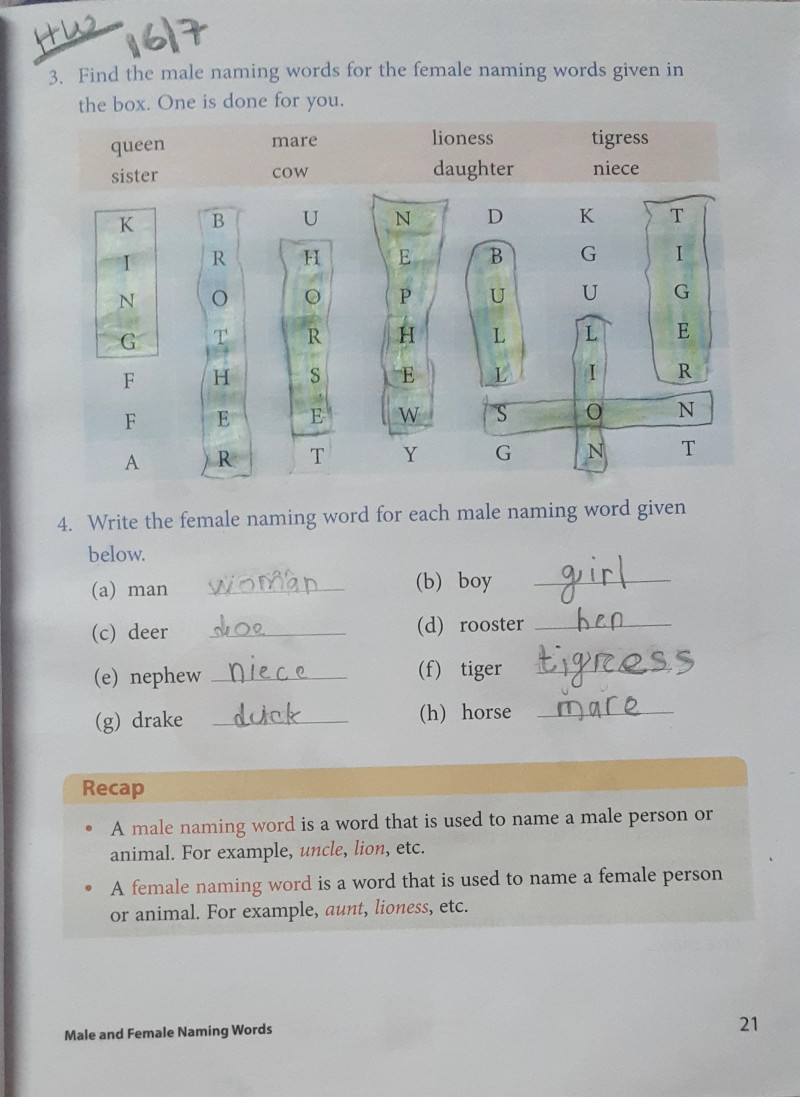 HW 16/7
3. Find the male naming words for the female naming words given in
the box. One is done for you.
queen mare lioness tigress
sister cow daughter niece
K B U N D K T
I R H E B G I
N O O P U U G
G T R H L L E
F H S E L I R
F E E W S O N
A R T Y G N T
4. Write the female naming word for each male naming word given
below.
(a) man woman (b) boy girl
(c) deer doe (d) rooster hen
(e) nephew niece (f) tiger tigress
(g) drake duck (h) horse mare
Recap
• A male naming word is a word that is used to name a male person or
animal. For example, uncle, lion, etc.
• A female naming word is a word that is used to name a female person
or animal. For example, aunt, lioness, etc.
Male and Female Naming Words 21